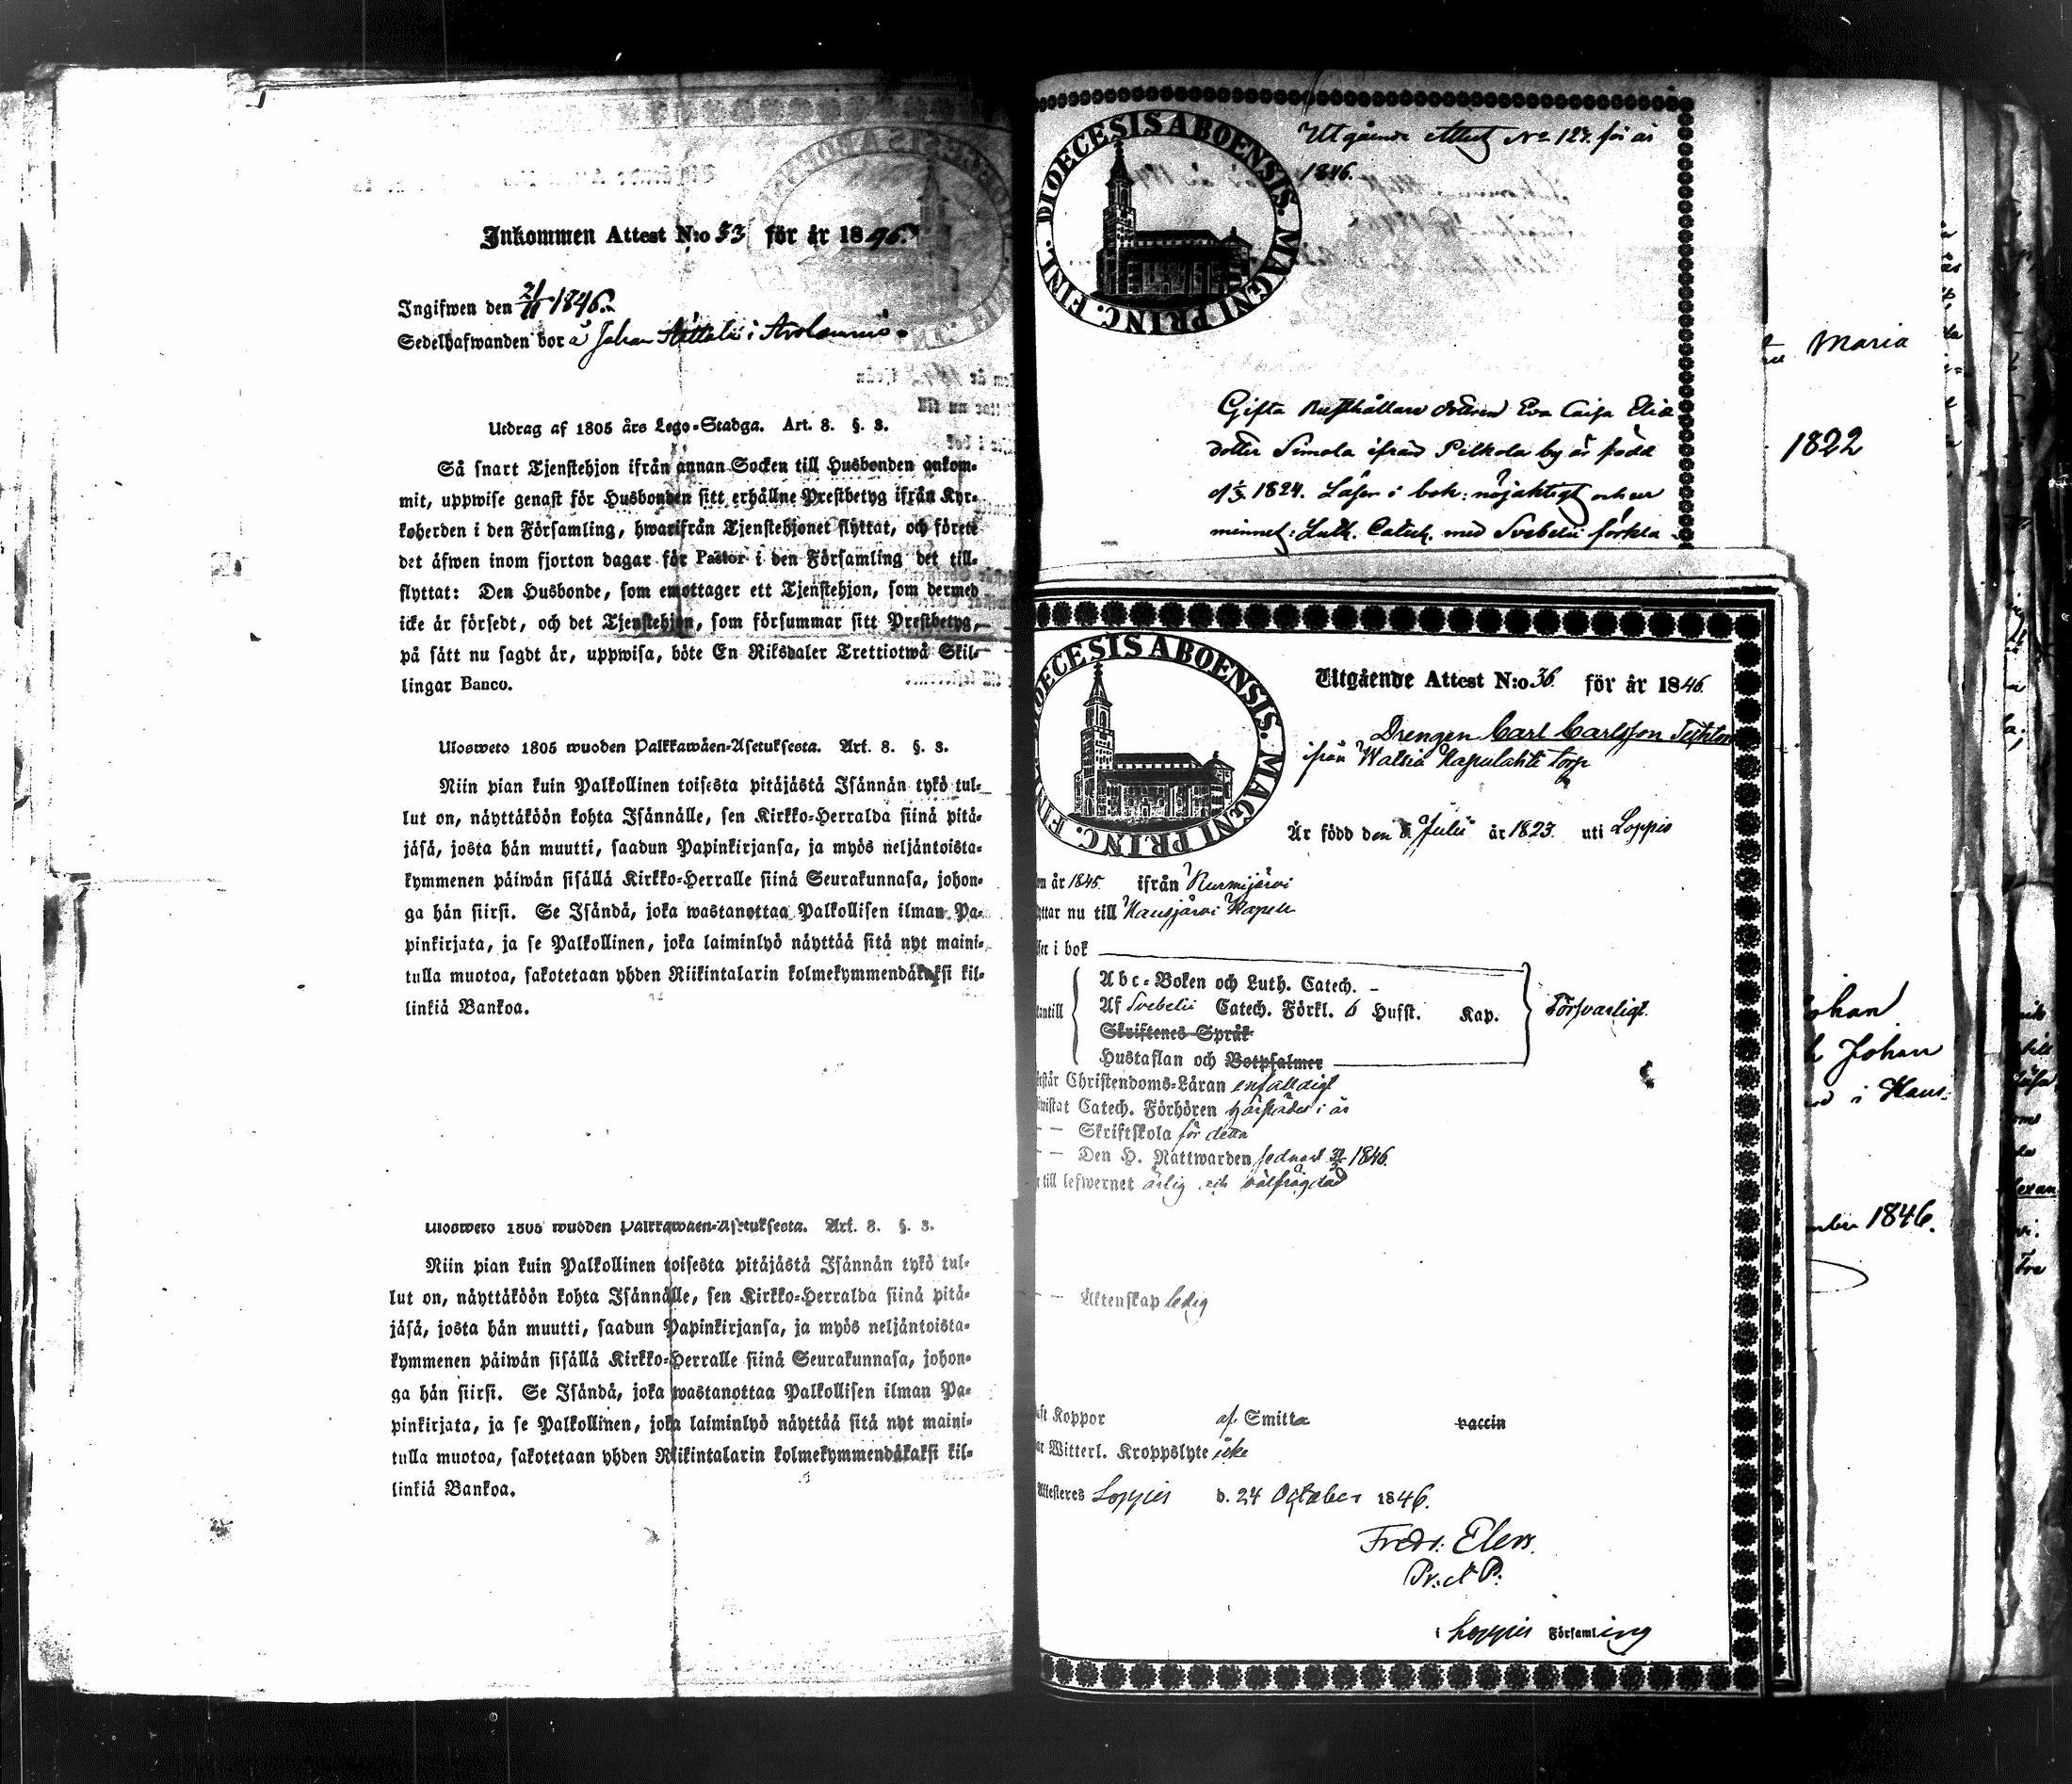 Inkommen Attest N:o 33 för år 1846.
Ingifwen den 21/11 1846.
Sedelhafwanden bor å Johan i
Utdrag af 1805 års Lego-Stadga. Art. 8. §. 3.
Så snart Tjenstehjon ifrån annan Socken till Husbonden ankom-
mit, uppwise genast för Husbonden sitt erhållne Prestbetyg ifrån Kyr-
koherden i den Församling, hwarifrån Tjenstehjonet flyttat, och förete
det äfwen inom fjorton dagar för Pastor i den Församling det till-
flyttat: Den Husbonde, som emottager ett Tjenstehjon, som dermed
icke är försedt, och det Tjenstehjon, som försummar sitt Prestbetyg,
på sätt nu sagdt är, uppwisa, böte En Riksdaler Trettiotwå Skil-
lingar Banco.
Ulosweto 1805 wuoden Palkkawäen-Asetuksesta. Art. 8. §. 3.
Niin pian kuin Palkollinen toisesta pitäjästä Isännän tykö tul-
lut on, näyttäköön kohta Isännälle, sen Kirkko-Herralda siinä pitä-
jäsä, josta hän muutti, saadun Papinkirjansa, ja myös neljäntoista-
kymmenen päiwän sisällä Kirkko-Herralle siinä Seurakunnasa, johon-
ga hän siirsi. Se Isändä, joka wastanottaa Palkollisen ilman Pa-
pinkirjata, ja se Palkollinen, joka laiminlyö näyttää sitä nyt maini-
tulla muotoa, sakotetaan yhden Riikintalarin kolmekymmendäkaksi kil-
linkiä Bankoa.
Ulosweto 1805 wuoden Palkkawäen-Asetuksesta. Art. 8. §. 3.
Niin pian kuin Palkollinen toisesta pitäjästä Isännän tykö tul-
lut on, näyttäköön kohta Isännälle, sen Kirkko-Herralda siinä pitä-
jäsä, josta hän muutti, saadun Papinkirjansa, ja myös neljäntoista-
kymmenen päiwän sisällä Kirkko-Herralle siinä Seurakunnasa, johon-
ga hän siirsi. Se Isändä, joka wastanottaa Palkollisen ilman Pa-
pinkirjata, ja se Palkollinen, joka laiminlyö näyttää sitä nyt maini-
tulla muotoa, sakotetaan yhden Riikintalarin kolmekymmendäkaksi kil-
linkiä Bankoa.
DIOECESIS ABOENSIS. MAGNI PRINC. FINL.
Utgående Attest No 127. för år
1846.
Gifta Rusthållare dottren Eva Caisa Elia
dotter Simola ifrån Pilkola by är född
d. 1824. Läser i bok: nöjaktigt och ur
minnet: Luth. Catech. med Svebelii förkla
DIOECESIS ABOENSIS. MAGNI PRINC. FIN
Utgående Attest N:o 36. för år 1846.
Drengen Carl Carlsson
ifrån Kapulahti torp
Är född den Julii år 1823. uti Loppis
år 1845. ifrån Nurmijärvi
flyttar nu till Hausjärvi Kapell
i bok
Abc-Boken och Luth. Catech.
Af Svebelii Catech. Förkl. 6 Hufst. Kap.
Försvarligt.
Skriftenes Språk
Hustaflan och Botpsalmer
Christendoms-Läran enfalldigt
Catech. Förhören härstädes i år
Skriftskola för detta
Den H. Nattwarden sednast 1846.
till lefwernet ärlig och välfrägdad
Äktenskap ledig
Koppor af Smitta vaccin
Witterl. Kroppslyte icke
Attesteres Loppis d. 24 October 1846.
Fredr: Elers.
i Loppis Församling
Maria
1822
Johan
Johan
i Haus:
1846.